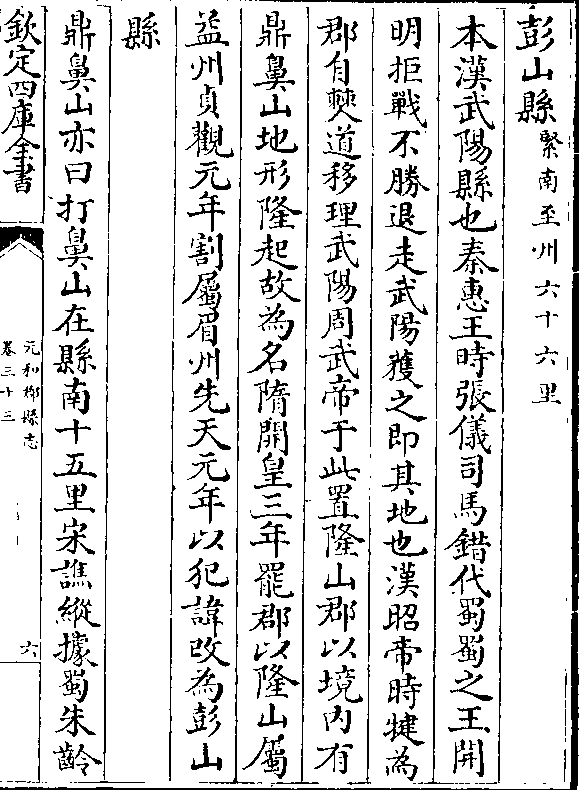 彭山縣緊南至州六十六里
本漢武陽縣也秦惠王時張儀司馬錯伐蜀蜀之王開
明拒戰不勝退走武陽獲之即其地也漢昭帝時犍為
郡自僰道移理武陽周武帝于此置隆山郡以境内有
鼎鼻山地形隆起故為名隋開皇三年罷郡以隆山屬
益州貞觀元年割屬眉州先天元年以犯諱改為彭山
縣
鼎鼻山亦曰打鼻山在縣南十五里宋譙縱據蜀朱齡
欽定四庫全書
元和郡縣志
卷三十三
六